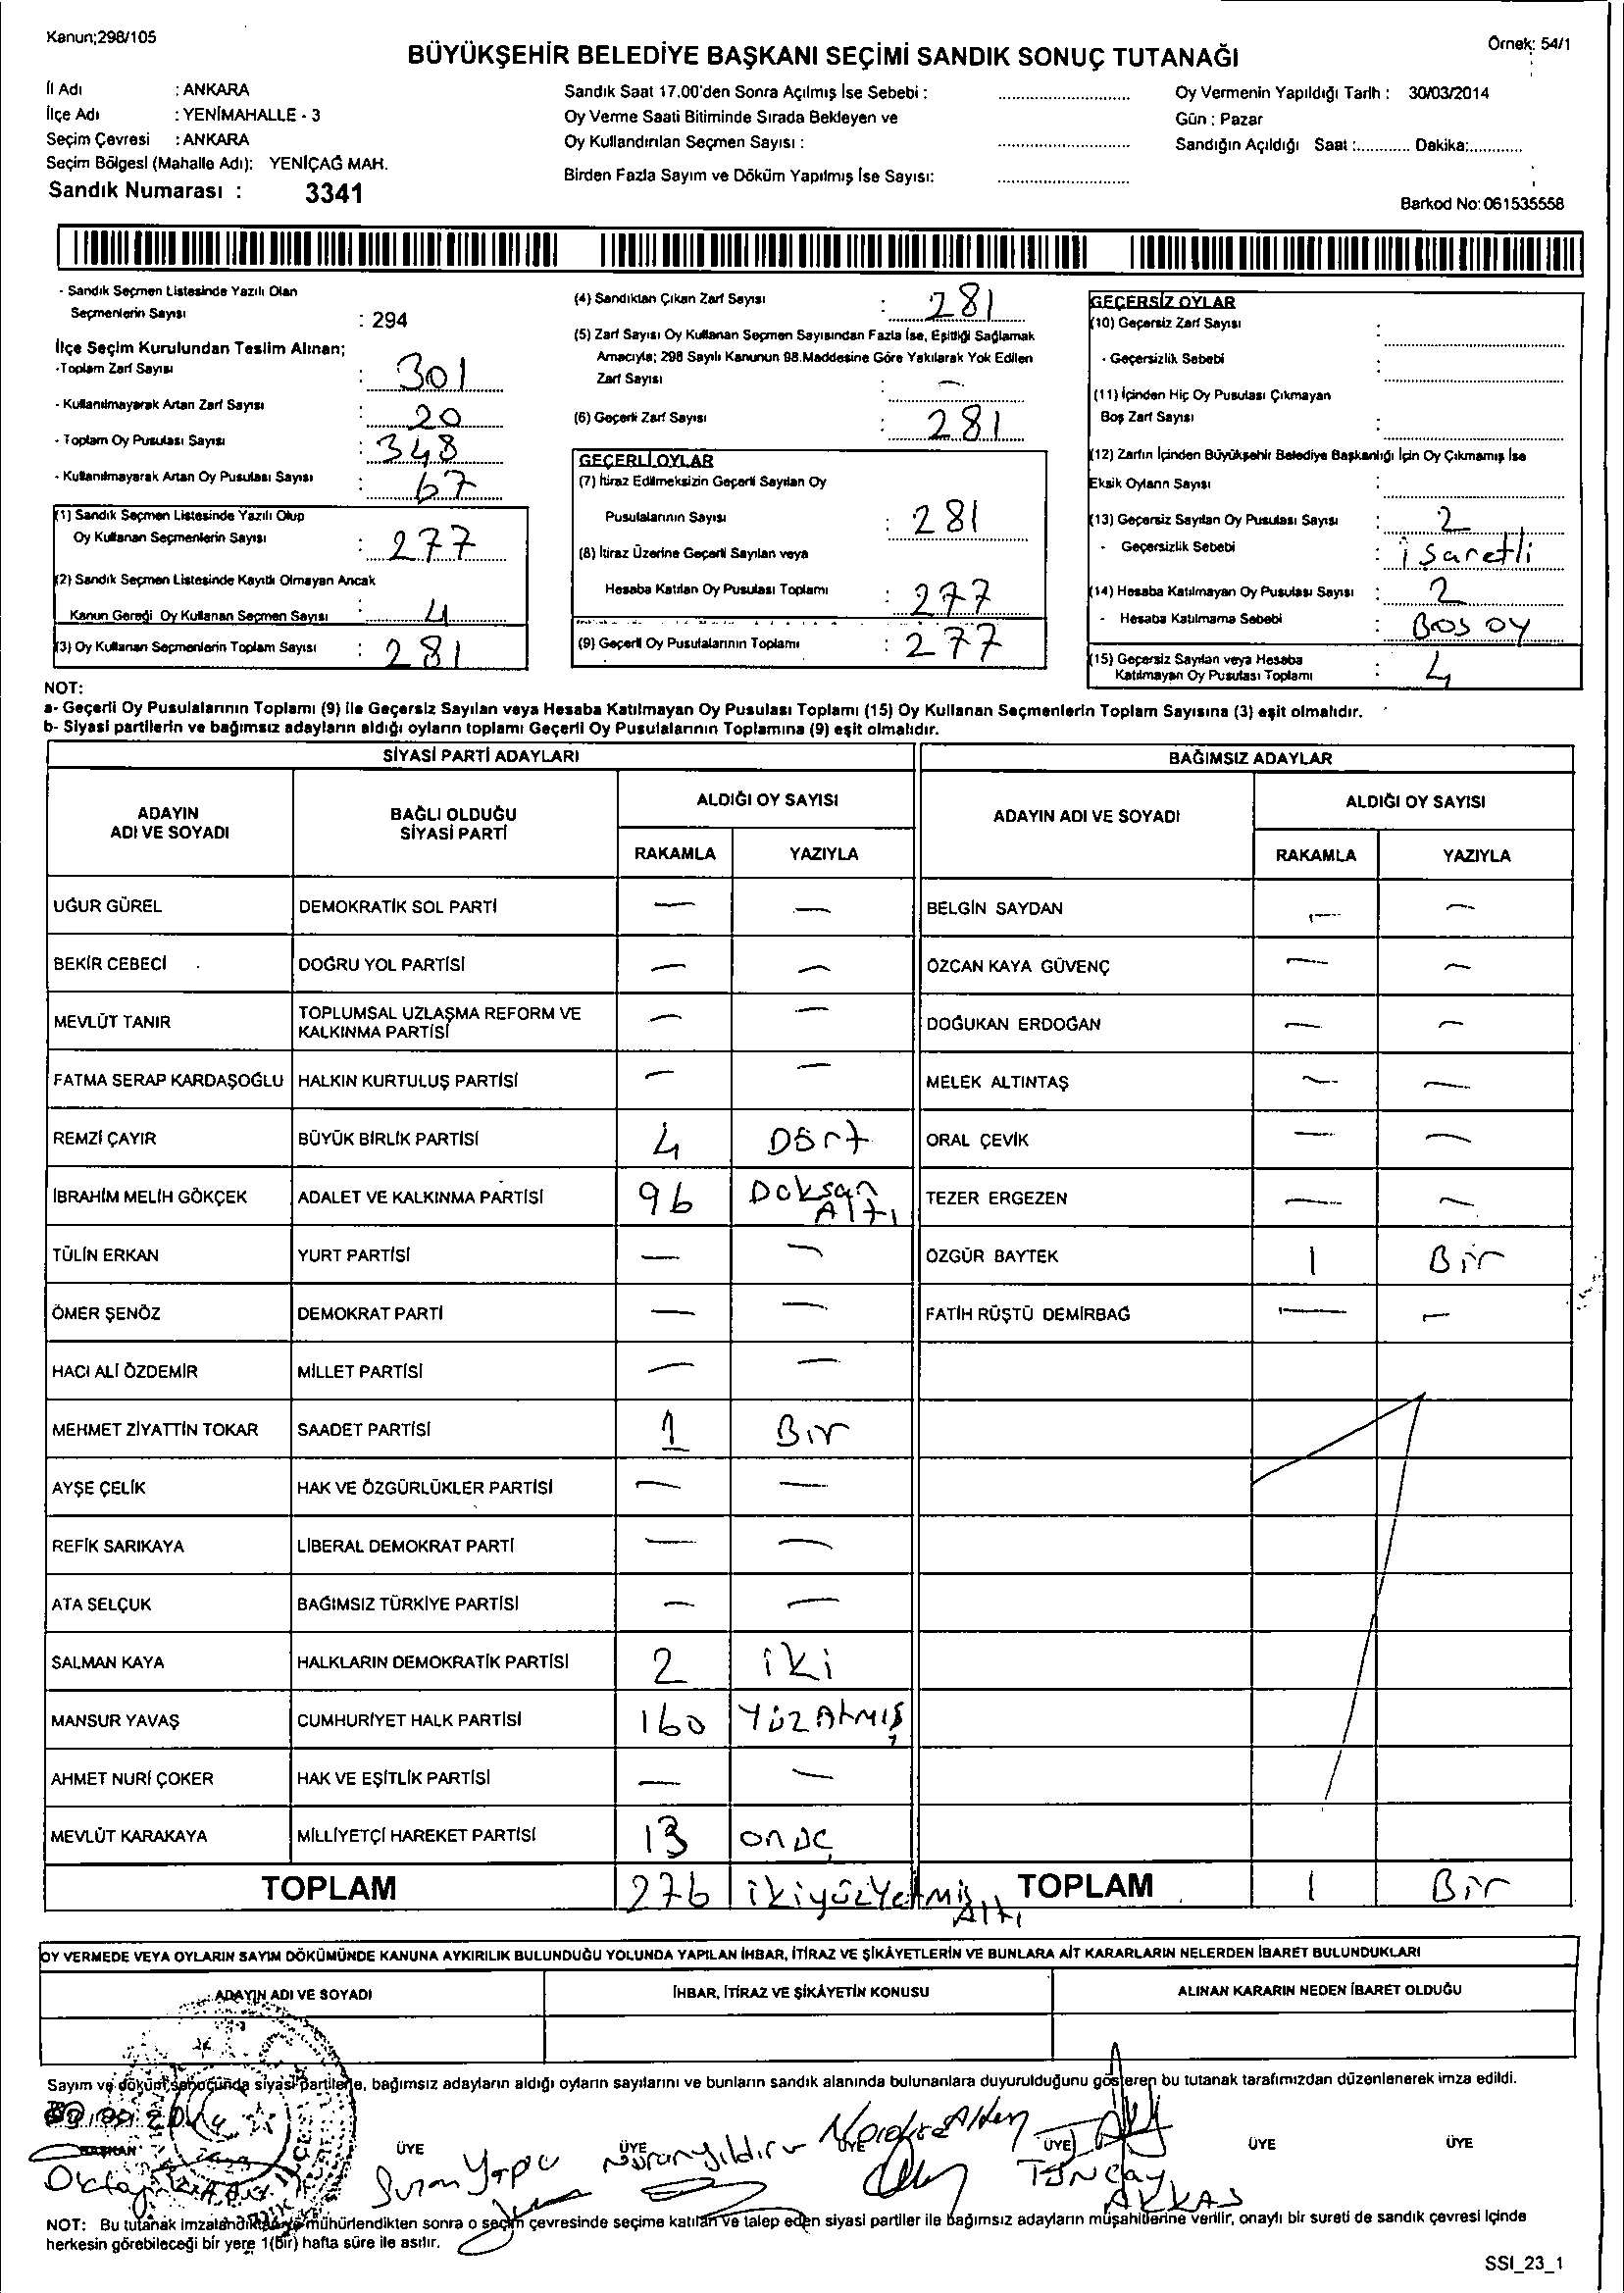 Kanun;298/105
Örnek: 54/1
BÜYÜKŞEHİR BELEDİYE BAŞKANI SEÇİMİ SANDIK SONUÇ TUTANAĞI
İl Adı : ANKARA
İlçe Adı : YENİMAHALLE - 3
Seçim Çevresi : ANKARA
Seçim Bölgesi (Mahalle Adı): YENİÇAĞ MAH.
Sandık Numarası : 3341
Sandık Saat 17.00'den Sonra Açılmış İse Sebebi :
Oy Verme Saati Bitiminde Sırada Bekleyen ve
Oy Kullandırılan Seçmen Sayısı :
Birden Fazla Sayım ve Döküm Yapılmış İse Sayısı:
Oy Vermenin Yapıldığı Tarih : 30/03/2014
Gün : Pazar
Sandığın Açıldığı Saat :............ Dakika:............
Barkod No: 061535558
- Sandık Seçmen Listesinde Yazılı Olan
Seçmenlerin Sayısı : 294
İlçe Seçim Kurulundan Teslim Alınan;
-Toplam Zarf Sayısı : 301
- Kullanılmayarak Artan Zarf Sayısı : 20
- Toplam Oy Pusulası Sayısı : 348
- Kullanılmayarak Artan Oy Pusulası Sayısı : 67
(1) Sandık Seçmen Listesinde Yazılı Olup
Oy Kullanan Seçmenlerin Sayısı : 277
(2) Sandık Seçmen Listesinde Kayıtlı Olmayan Ancak
Kanun Gereği Oy Kullanan Seçmen Sayısı : 4
(3) Oy Kullanan Seçmenlerin Toplam Sayısı : 281
(4) Sandıktan Çıkan Zarf Sayısı : 281
(5) Zarf Sayısı Oy Kullanan Seçmen Sayısından Fazla İse, Eşitliği Sağlamak
Amacıyla; 298 Sayılı Kanunun 98.Maddesine Göre Yakılarak Yok Edilen
Zarf Sayısı : —
(6) Geçerli Zarf Sayısı : 281
GEÇERLİ OYLAR
(7) İtiraz Edilmeksizin Geçerli Sayılan Oy
Pusulalarının Sayısı : 281
(8) İtiraz Üzerine Geçerli Sayılan veya
Hesaba Katılan Oy Pusulası Toplamı : 277
(9) Geçerli Oy Pusulalarının Toplamı : 277
GEÇERSİZ OYLAR
(10) Geçersiz Zarf Sayısı :
- Geçersizlik Sebebi :
(11) İçinden Hiç Oy Pusulası Çıkmayan
Boş Zarf Sayısı :
(12) Zarfın İçinden Büyükşehir Belediye Başkanlığı İçin Oy Çıkmamış İse
Eksik Oyların Sayısı :
(13) Geçersiz Sayılan Oy Pusulası Sayısı : 2
- Geçersizlik Sebebi : işaretli
(14) Hesaba Katılmayan Oy Pusulası Sayısı : 2
- Hesaba Katılmama Sebebi : BOS OY
(15) Geçersiz Sayılan veya Hesaba
Katılmayan Oy Pusulası Toplamı : 4
NOT:
a- Geçerli Oy Pusulalarının Toplamı (9) ile Geçersiz Sayılan veya Hesaba Katılmayan Oy Pusulası Toplamı (15) Oy Kullanan Seçmenlerin Toplam Sayısına (3) eşit olmalıdır.
b- Siyasi partilerin ve bağımsız adayların aldığı oyların toplamı Geçerli Oy Pusulalarının Toplamına (9) eşit olmalıdır.
SİYASİ PARTİ ADAYLARI
ADAYIN ADI VE SOYADI BAĞLI OLDUĞU SİYASİ PARTİ ALDIĞI OY SAYISI RAKAMLA YAZIYLA
BAĞIMSIZ ADAYLAR
ADAYIN ADI VE SOYADI ALDIĞI OY SAYISI RAKAMLA YAZIYLA
UĞUR GÜREL DEMOKRATİK SOL PARTİ — — BELGİN SAYDAN — —
BEKİR CEBECİ DOĞRU YOL PARTİSİ — — ÖZCAN KAYA GÜVENÇ — —
MEVLÜT TANIR TOPLUMSAL UZLAŞMA REFORM VE KALKINMA PARTİSİ — — DOĞUKAN ERDOĞAN — —
FATMA SERAP KARDAŞOĞLU HALKIN KURTULUŞ PARTİSİ — — MELEK ALTINTAŞ — —
REMZİ ÇAYIR BÜYÜK BİRLİK PARTİSİ 4 Dört ORAL ÇEVİK — —
İBRAHİM MELİH GÖKÇEK ADALET VE KALKINMA PARTİSİ 96 Doksan Altı TEZER ERGEZEN — —
TÜLİN ERKAN YURT PARTİSİ — — ÖZGÜR BAYTEK 1 Bir
ÖMER ŞENÖZ DEMOKRAT PARTİ — — FATİH RÜŞTÜ DEMİRBAĞ — —
HACI ALİ ÖZDEMİR MİLLET PARTİSİ — —
MEHMET ZİYATTİN TOKAR SAADET PARTİSİ 1 Bir
AYŞE ÇELİK HAK VE ÖZGÜRLÜKLER PARTİSİ — —
REFİK SARIKAYA LİBERAL DEMOKRAT PARTİ — —
ATA SELÇUK BAĞIMSIZ TÜRKİYE PARTİSİ — —
SALMAN KAYA HALKLARIN DEMOKRATİK PARTİSİ 2 iki
MANSUR YAVAŞ CUMHURİYET HALK PARTİSİ 160 YÜZ Atmış
AHMET NURİ ÇOKER HAK VE EŞİTLİK PARTİSİ — —
MEVLÜT KARAKAYA MİLLİYETÇİ HAREKET PARTİSİ 13 onüç
TOPLAM 276 ikiyüzYetmiş Altı TOPLAM 1 Bir
OY VERMEDE VEYA OYLARIN SAYIM DÖKÜMÜNDE KANUNA AYKIRILIK BULUNDUĞU YOLUNDA YAPILAN İHBAR, İTİRAZ VE ŞİKÂYETLERİN VE BUNLARA AİT KARARLARIN NELERDEN İBARET BULUNDUKLARI
ADAYIN ADI VE SOYADI İHBAR, İTİRAZ VE ŞİKÂYETİN KONUSU ALINAN KARARIN NEDEN İBARET OLDUĞU
Sayım ve döküm sonucunda siyasi partilerle, bağımsız adayların aldığı oyların sayılarını ve bunların sandık alanında bulunanlara duyurulduğunu gösteren bu tutanak tarafımızdan düzenlenerek imza edildi.
BAŞKAN ÜYE ÜYE ÜYE ÜYE ÜYE ÜYE
Oktay Nuran Yıldırım TUNCAY AKKAS
NOT: Bu tutanak imzalandıktan ve mühürlendikten sonra o seçim çevresinde seçime katılan ve talep eden siyasi partiler ile bağımsız adayların müşahitlerine verilir, onaylı bir sureti de sandık çevresi içinde
herkesin görebileceği bir yere 1(bir) hafta süre ile asılır.
SSI_23_1